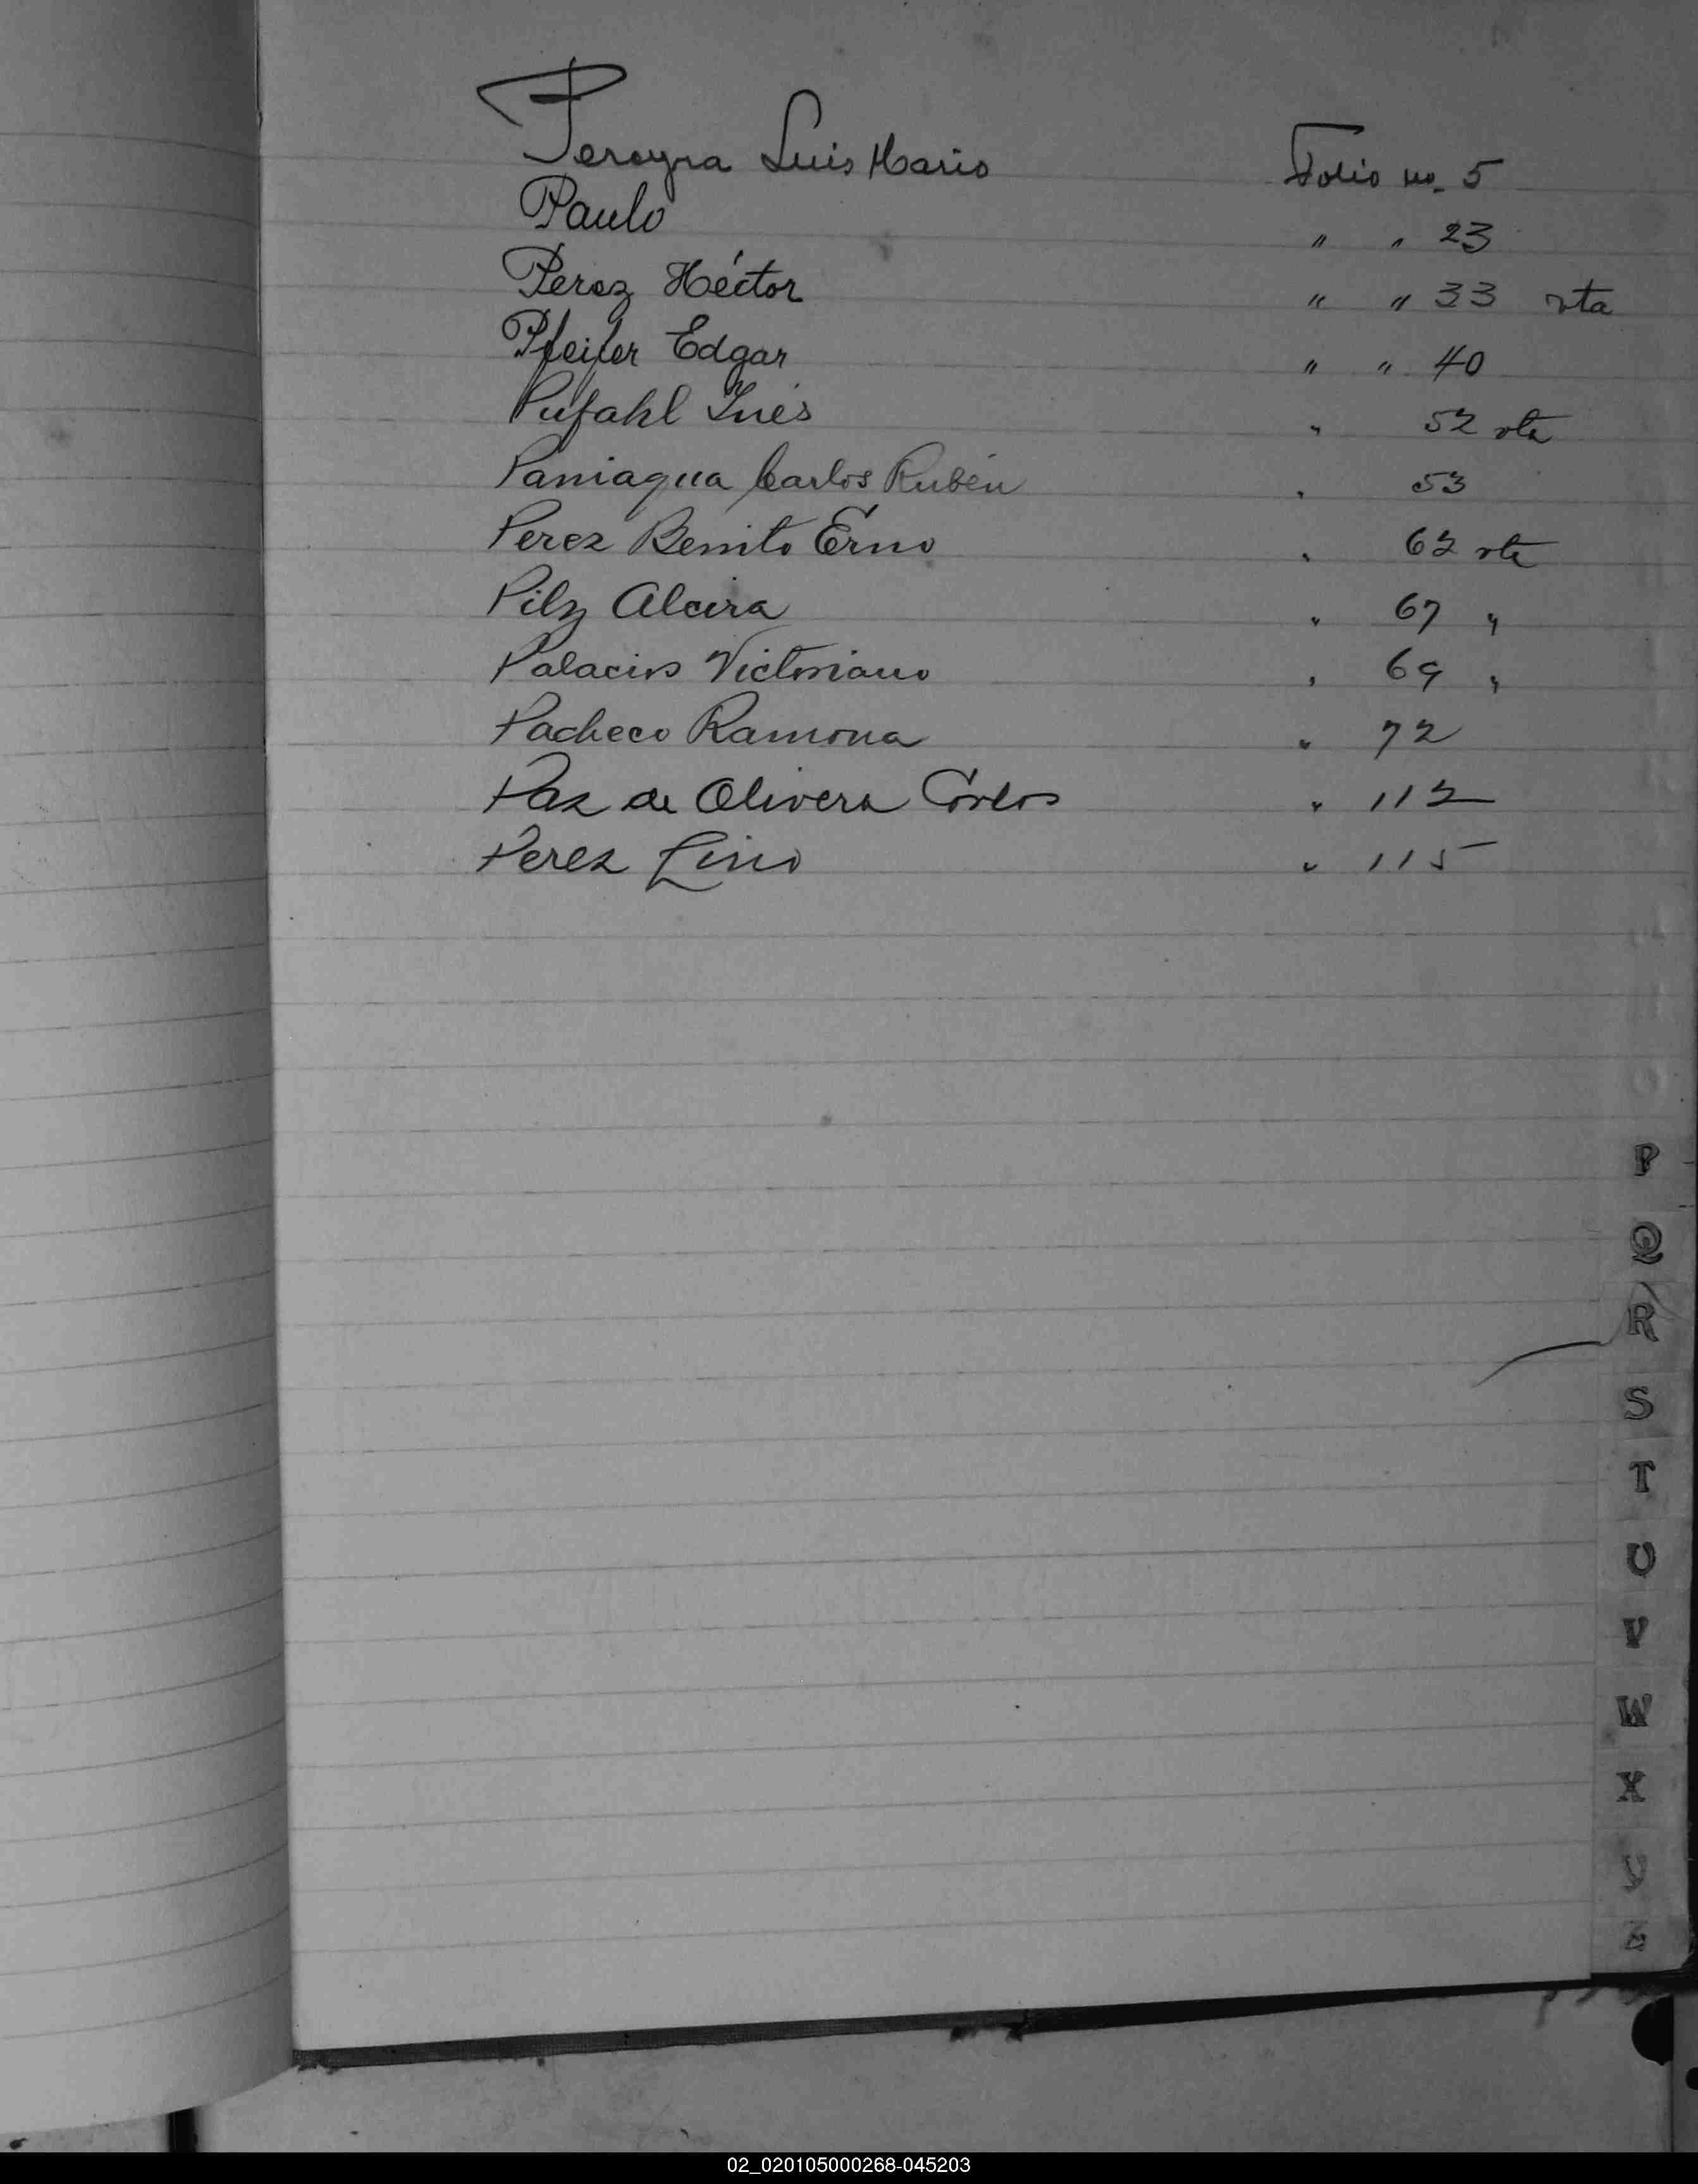 Pereyra Luis Mario Folio no. 5
Paulo " " 23
Perez Héctor " " 33 vta
Pfeifer Edgar " " 40
Pufahl Inés " 52 vta
Paniagua Carlos Rubén " 53
Perez Benito Erno " 62 vta
Pilz Alcira " 67 "
Palacios Victoriano " 69 "
Pacheco Ramona " 72
Paz de Olivera Carlos " 112
Perez Lino " 115
P
Q
R
S
T
U
V
W
X
Y
Z
02_020105000268-045203